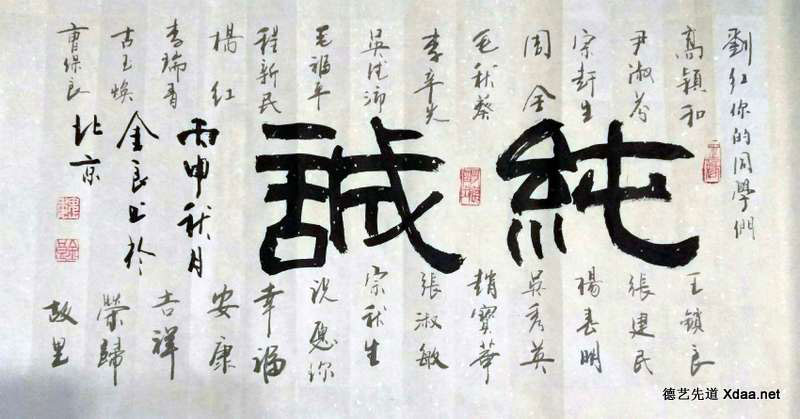 劉红你的同學們
高颖和
尹淑芬
宗軒生
周全
毛秋蔡
毛福平
程新民
楊红
李瑞香
古玉焕
曹保良
純誠
王锁良
張建民
楊春明
吴秀英
趙寶華
張淑敏
宗秋生
祝愿你
幸福
安康
吉祥
榮歸
故里
丙申秋月
金良书於
北京
德艺先道 Xdaa.net